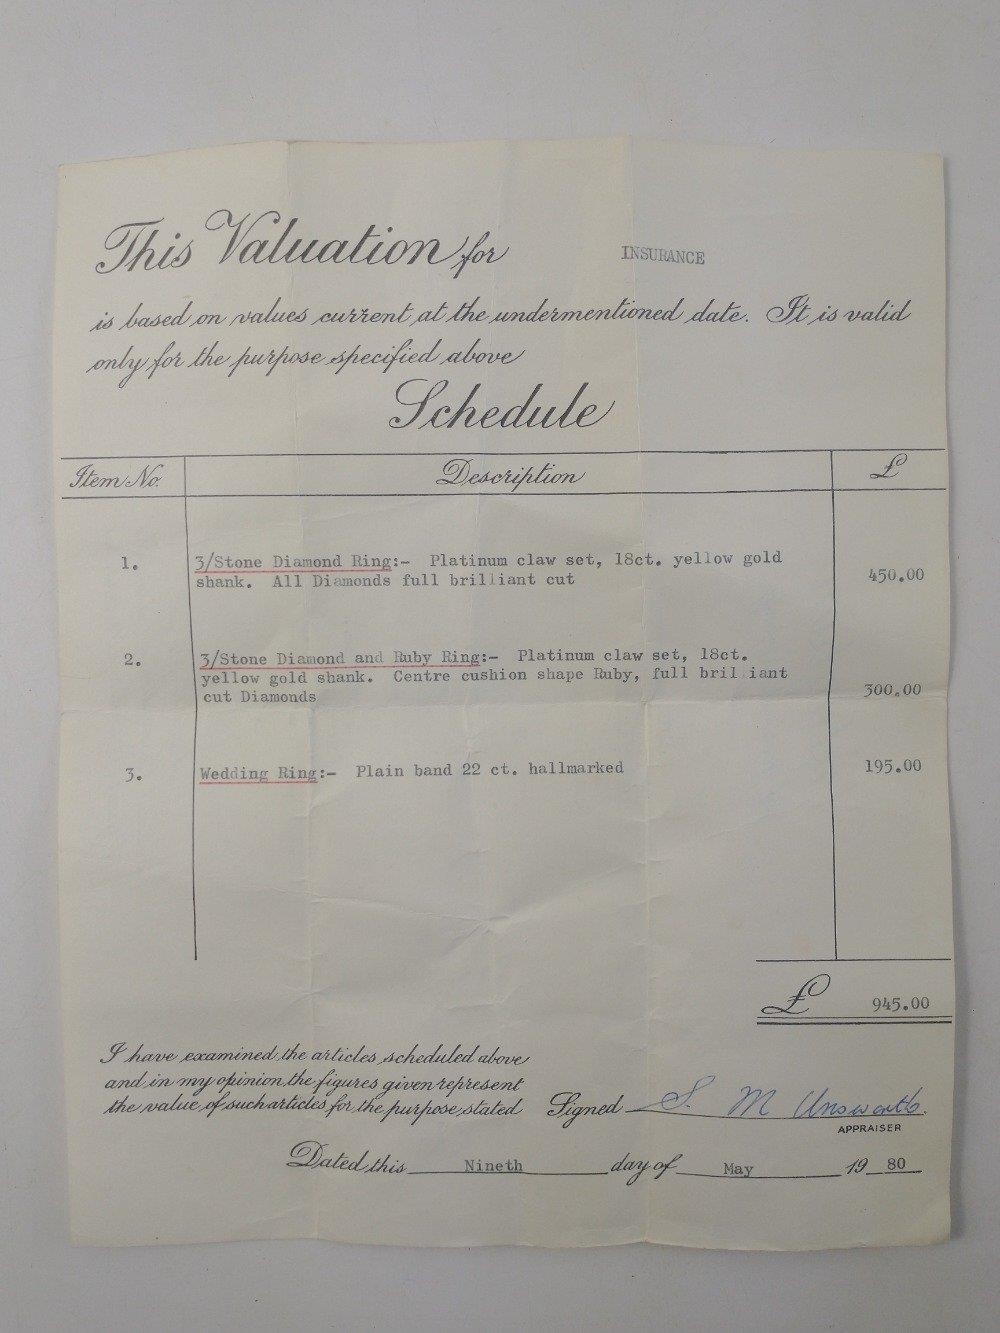 This Valuation for INSURANCE
is based on values current at the undermentioned date. It is valid
only for the purpose specified above
Schedule
Item No. Description £
1. 3/Stone Diamond Ring:- Platinum claw set, 18ct. yellow gold
shank. All Diamonds full brilliant cut 450.00
2. 3/Stone Diamond and Ruby Ring:- Platinum claw set, 18ct.
yellow gold shank. Centre cushion shape Ruby, full brilliant
cut Diamonds 300.00
3. Wedding Ring:- Plain band 22 ct. hallmarked 195.00
£ 945.00
I have examined the articles scheduled above
and in my opinion the figures given represent
the value of such articles for the purpose stated Signed S. M Unsworth.
APPRAISER
Dated this Nineth day of May 19 80